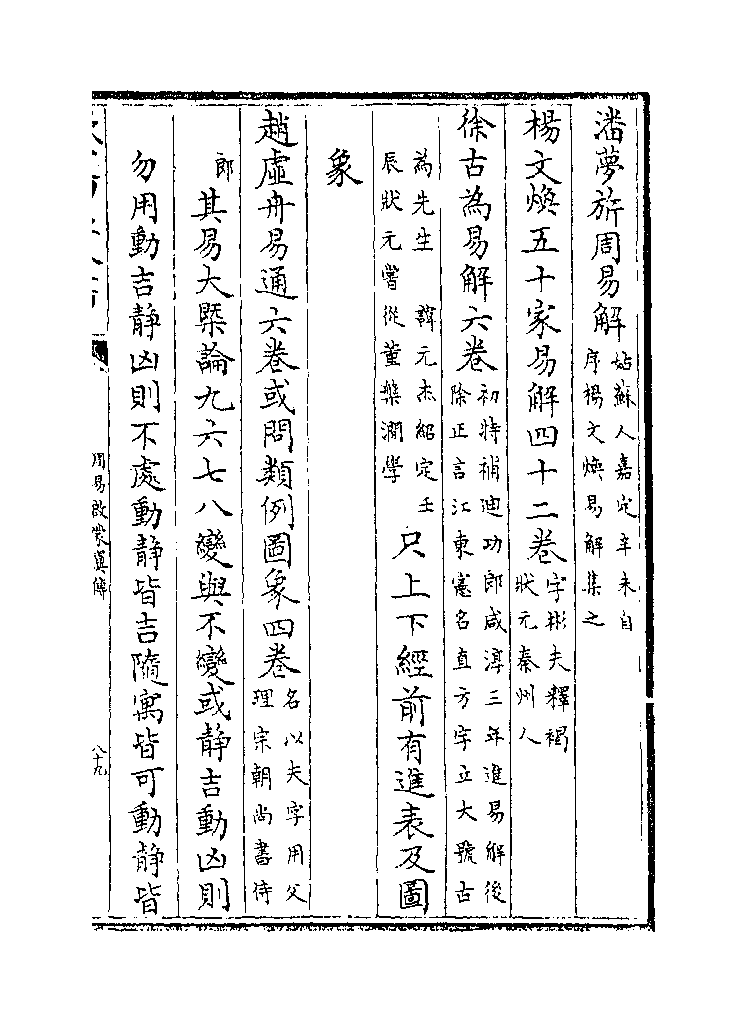 潘夢旂周易解姑蘇人嘉定辛未自
序楊文煥易解集之
楊文煥五十家易解四十二卷字彬夫釋褐
狀元秦州人
徐古為易解六卷初特補迪功郎咸淳三年進易解後
除正言江東憲名直方字立大號古
為先生 韓元杰紹定壬
辰狀元嘗從董槃澗學
只上下經前有進表及圖
象
趙虛舟易通六卷或問類例圖象四卷名以夫字用父
理宗朝尚書侍
郎
其易大槩論九六七八變與不變或静吉動凶則
勿用動吉静凶則不處動静皆吉隨寓皆可動静皆
周易啟蒙翼傳
八十九